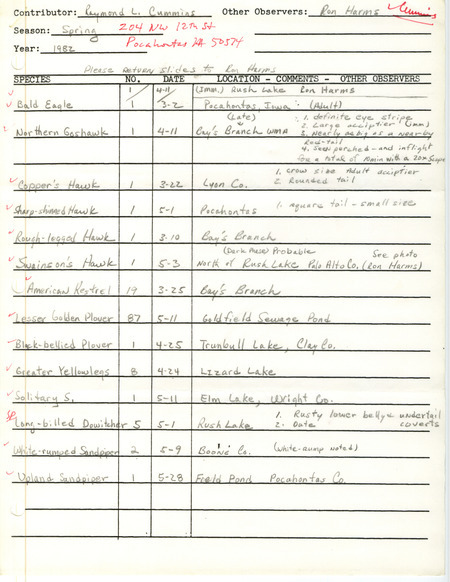 Contributor: Raymond L. Cummins Other Observers: Ron Harms Cummins
Season: Spring 204 NW 12th St
Year: 1982 Pocahontas IA 50574
Please return slides to Ron Harms
SPECIES NO. DATE LOCATION - COMMENTS - OTHER OBSERVERS
1 4-11 (Imm.) Rush Lake Ron Harms
Bald Eagle 1 3-2 Pocahontas, Iowa (Adult)
(Late) 1. definite eye stripe
2. Large accipiter (Imm)
Northern Goshawk 1 4-11 Bay's Branch WMA 3. Nearly as big as a nearby
Red-tail
4. Seen perched - and inflight
See a total of 10 min with a 20x Scope
1. Crow size Adult accipiter
Copper's Hawk 1 3-22 Lyon Co. 2. Rounded tail
Sharp-shinned Hawk 1 5-1 Pocahontas 1. square tail - small size
Rough-legged Hawk 1 3-10 Bay's Branch
(Dark Phase) Probable See photo
Swainson's Hawk 1 5-3 North of Rush Lake Palo Alto Co. (Ron Harms)
American Kestrel 19 3-25 Bay's Branch
Lesser Golden Plover 87 5-11 Goldfield Sewage Pond
Black-bellied Plover 1 4-25 Trumbull Lake, Clay Co.
Greater Yellowlegs 8 4-24 Lizard Lake
Solitary S. 1 5-11 Elm Lake, Wright Co.
SR Long-billed Dowitcher 5 5-1 Rush Lake 1. Rusty lower belly & undertail
2. Date coverts
White-rumped Sandpiper 2 5-9 Boone Co. (White-rump noted)
Upland Sandpiper 1 5-28 Field Pond Pocahontas Co.